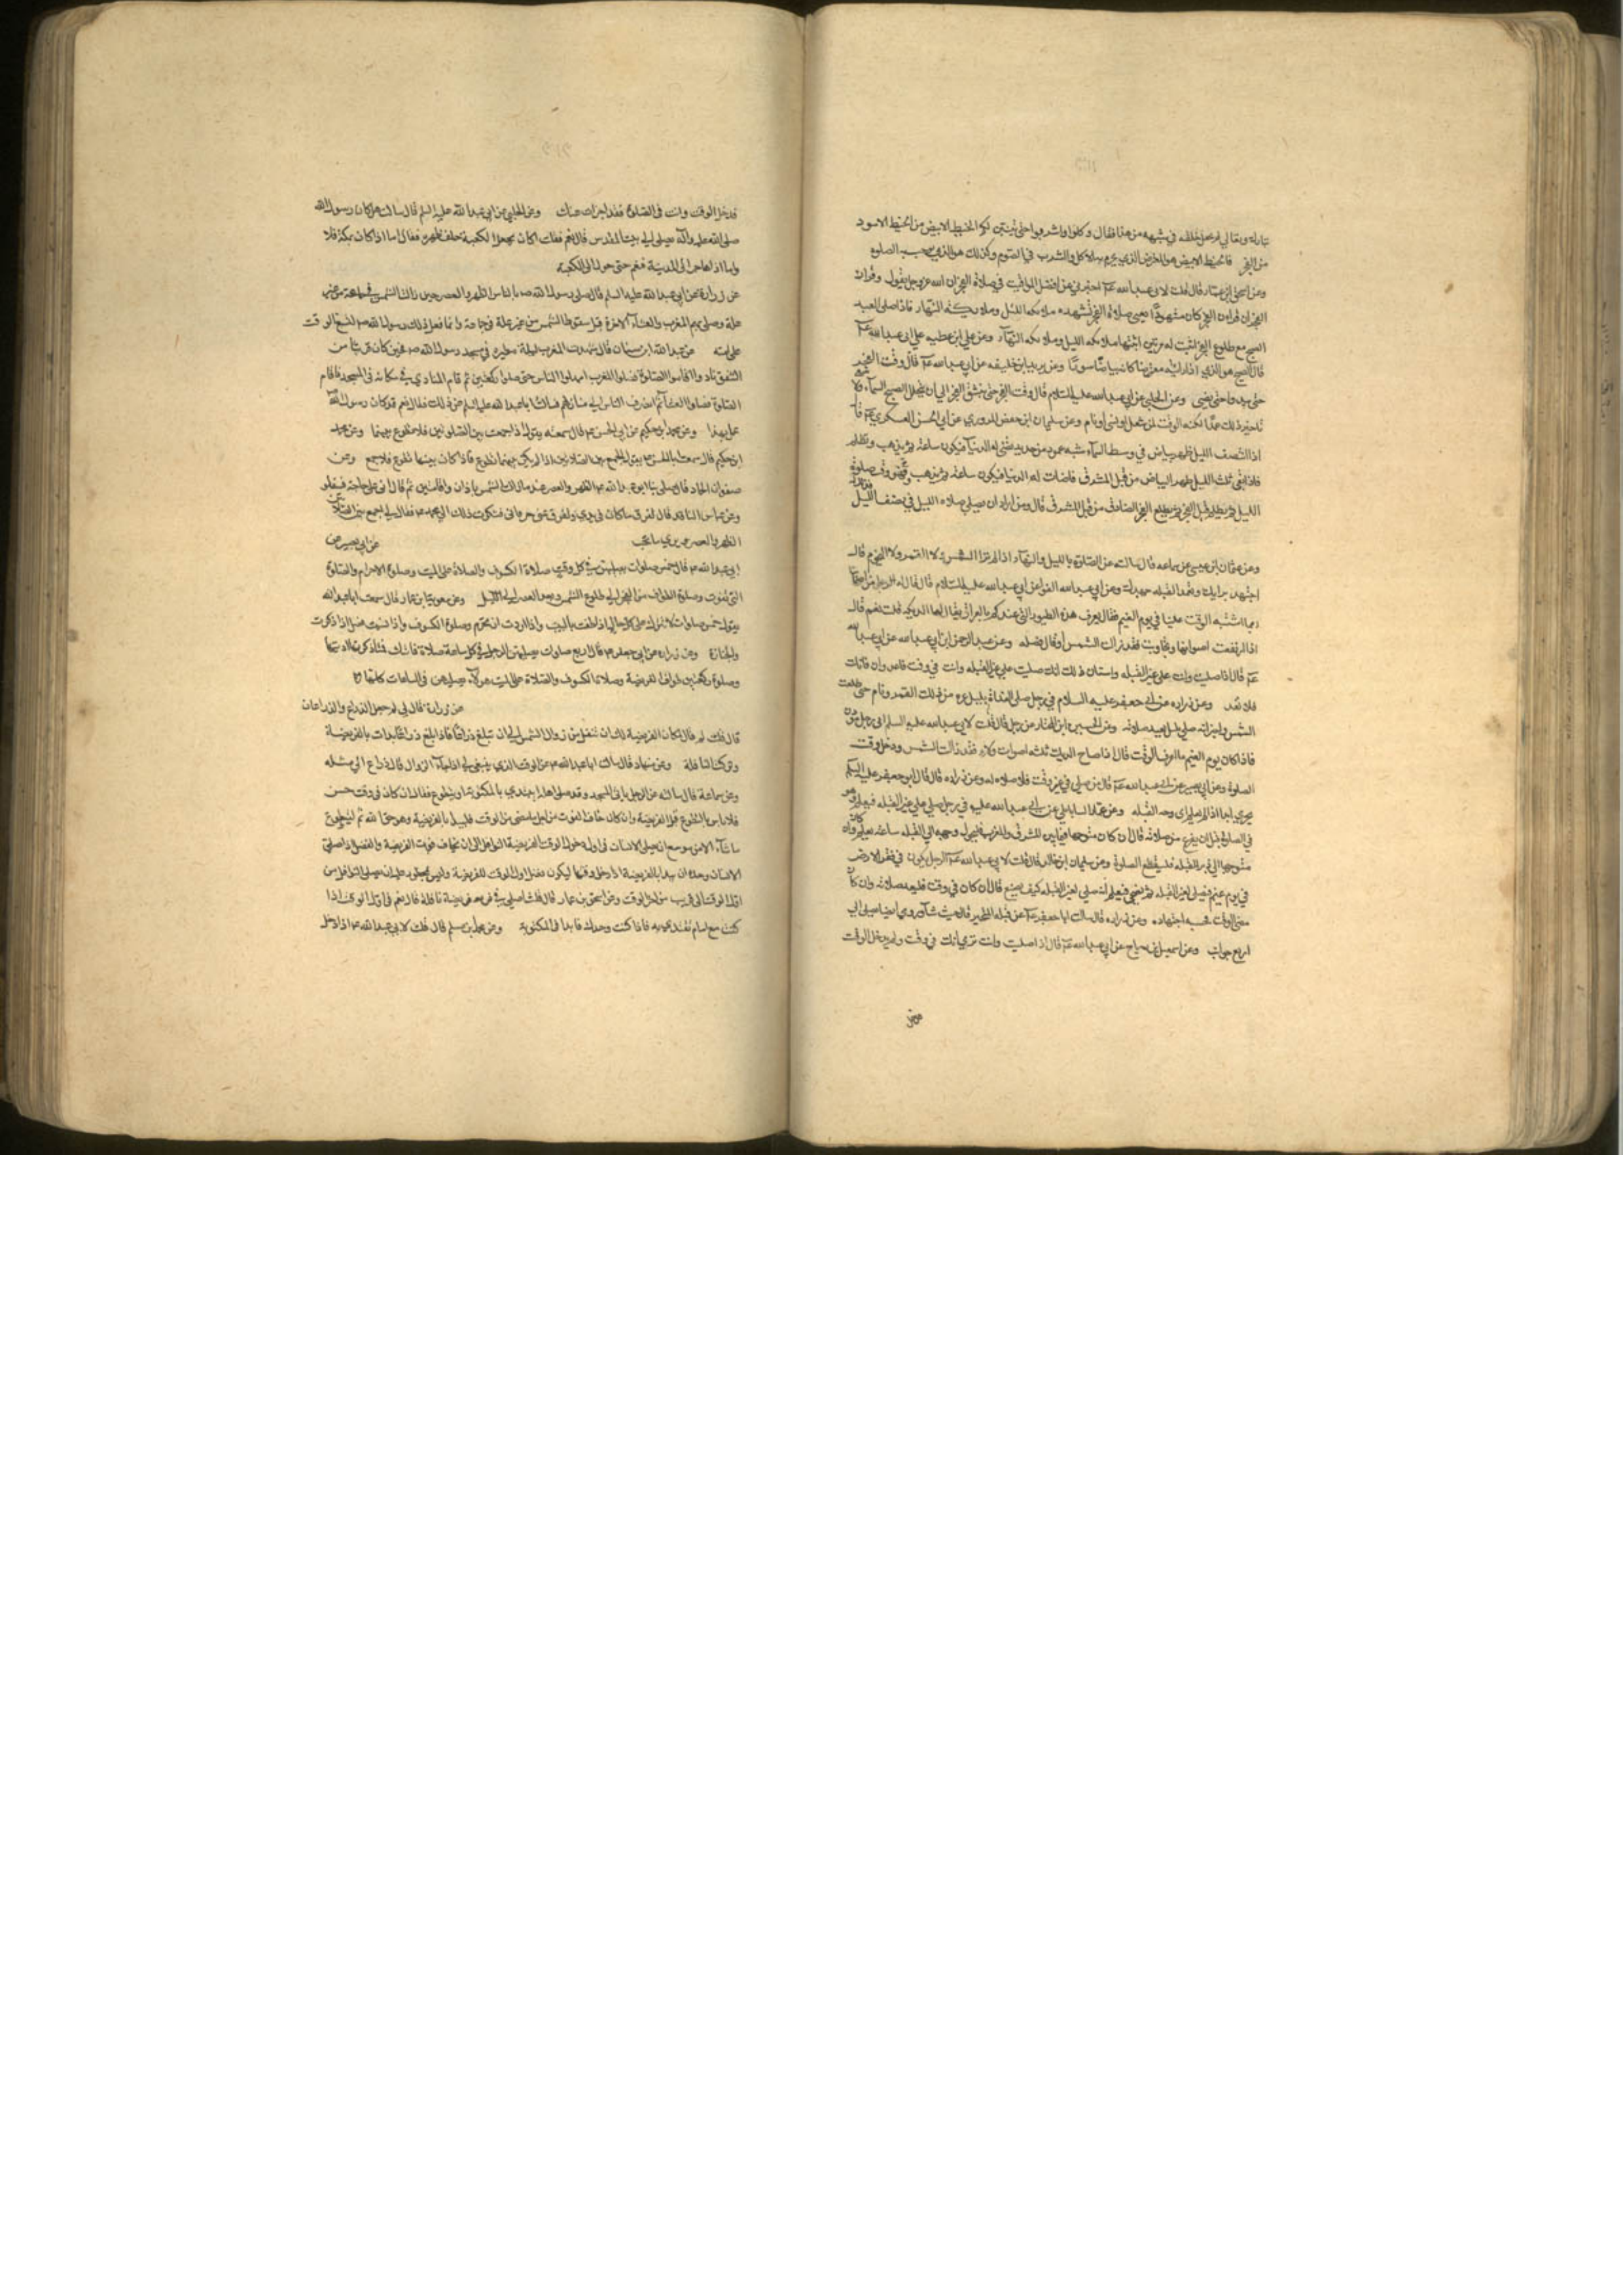 تبارك وتعالى لم يجعل خلقه في شبهه من هذا فقال وكلوا واشربوا حتى يتبين لكم الخيط الابيض من الخيط الاسود
من الفجر فالخيط الابيض هو المعترض الذي يحرم به الاكل والشرب في الصوم وكذلك هو الذي يوجب الصلوة
وعن اسحق ابن عمار قال قلت لابي عبد الله عم اخبرني عن افضل المواقيت في صلاة الفجر ان الله عز وجل يقول وقران
الفجر ان قران الفجر كان مشهودا يعني صلاة الفجر تشهده ملائكه الليل وملائكة النهار فاذا صلى العبد
الصبح مع طلوع الفجر اثبت له مرتين اثبتها ملائكه الليل وملائكه النهار وعن علي ابن عطيه عن ابي عبد الله عم
قال الصبح هو الذي اذا رايته معترضا كانه بياض سورا وعن يزيد ابن خليفه عن ابي عبد الله عم قال وقت الفجر
حين يبدوا حتى يضي وعن الحلبي عن ابي عبد الله عليه السلام قال وقت الفجر حين ينشق الفجر الى ان يتجلل الصبح السمآء ولا ينبغي
تاخير ذلك عمدا لكنه الوقت لمن شغل او نسي او نام وعن سليمان ابن حفص المروزي عن ابي الحسن العسكري عم قال
اذا انتصف الليل ظهر بياض في وسط السمآء شبه عمود من حديد تضئ له الدنيا فيكون ساعة ثم يذهب وتظلم
فاذا بقي ثلث الليل ظهر البياض من قبل المشرق فاضات له الدنيا فيكون ساعة ثم يذهب وهو وقت صلوة
الليل ثم يظلم قبل الفجر ثم يطلع الفجر الصادق من قبل المشرق قال ومن اراد ان يصلي صلاه الليل في نصف الليل فذلك له
وعن عثمان ابن عيسى عن سماعه قال سالته عن الصلوة بالليل والنهار اذا لم ترا الشمس ولا القمر ولا النجوم قال
اجتهد برايك وتعمد القبله جهدك وعن ابي عبد الله الفرا عن ابي عبد الله عليه السلام قال قال له رجل من اصحابنا
ربما اشتبه الوقت علينا في يوم الغيم فقال تعرف هذه الطيور التي عندكم بالعراق يقال لها الديكه قلت نعم قال
اذا ارتفعت اصواتها وتجاوبت فقد زالت الشمس او قال فصله وعن عبد الرحمن ابن ابي عبد الله عن ابي عبد الله
عم قال اذا صليت وانت على غير القبله واستبان ذلك انك صليت على غير القبله وانت في وقت فاعد وان فاتك
فلا تعد وعن زراره عن ابي جعفر عليه السلام في رجل صلى الغداة بليل غره من ذلك القمر ونام حتى طلعت
الشمس واخبر انه صلى بليل يعيد صلاته وعن الحسين ابن المختار عن رجل قال قلت لابي عبد الله عليه السلم اني رجل مؤذن
فاذا كان يوم الغيم ما اعرف الوقت قال اذا صاح الديك ثلثه اصوات ولاء فقد زالت الشمس ودخل وقت
الصلوة وعن ابي بصير عن ابي عبد الله عم قال من صلى في غير وقت فلا صلاه له وعن زراره قال قال ابو جعفر عليه السلم
يجزي ابدا اذا لم يعلم اين وجه القبله وعن عمار الساباطي عن ابي عبد الله عليه في رجل صلى على غير القبله فيعلم وهو
في الصلوة قبل ان يفرغ من صلاته قال ان كان متوجها فيما بين المشرق والمغرب فليحول وجهه الي القبله ساعه يعلم وان كان
متوجها الي دبر القبله فليقطع الصلوة وعن سليمان ابن خالد قال قلت لابي عبد الله عم الرجل يكون في قفر الارض
في يوم غيم فيصلي لغير القبله ثم يضحي فيعلم انه صلى لغير القبله كيف يصنع قال ان كان في وقت فليعد صلاته وان كان
مضى الوقت فحسبه اجتهاده وعن زراره قال سالت ابا جعفر عم عن قبله المتحير قال حيث شآء وروي ايضا يصلي الى
اربع جوانب وعن اسمعيل ابن رباح عن ابي عبد الله عم قال اذا صليت وانت ترى انك في وقت ولم يدخل الوقت
قد دخل الوقت وانت في الصلوة فقد اجزات عنك وعن الحلبي عن ابي عبد الله عليه السلم قال سالت هل كان رسول الله
صلى الله عليه وآله يصلي الى بيت المقدس قال نعم فقلت اكان يجعل الكعبة خلف ظهره فقال اما اذا كان بمكة فلا
واما اذا هاجر الى المدينة فنعم حتى حول الى الكعبة
عن زرارة عن ابي عبد الله عليه السلم قال صلى رسول الله ص بالناس الظهر والعصر حين زالت الشمس في جماعة من غير
علة وصلى بهم المغرب والعشاء الاخرة قبل سقوط الشفق من غير علة في جماعة وانما فعل ذلك رسول الله ص ليتسع الوقت
على امته عن عبد الله ابن سنان قال شهدت المغرب ليلة مطيرة في مسجد رسول الله ص فحين كان قريبا من
الشفق ناد وا اقاموا الصلوة فصلوا المغرب امهلوا الناس حتى صلوا ركعتين ثم قام المنادي في مكانه في المسجد فاقام
الصلوة فصلوا العشآء ثم انصرف الناس الى منازلهم فسالت ابا عبد الله عليه السلم عن ذلك فقال نعم قد كان رسول الله
عمل بهذا وعن محمد ابن حكيم عن ابي الحسن عم قال سمعته يقول اذا جمعت بين الصلوتين فلا تطوع بينهما وعن محمد
ابن حكيم قال سمعت ابا الحسن عم يقول الجمع بين الصلاتين اذا لم يكن بينهما تطوع فاذا كان بينهما تطوع فلا جمع وعن
صفوان الجمال قال صلى بنا ابو عبد الله عم الظهر والعصر عند ما زالت الشمس باذان واقامتين ثم قال اني على حاجة فتنفلوا
وعن عباس الناقد قال تفرق ما كان في يدي وتفرق عني حرفائي فشكوت ذلك الى ابي محمد عم فقال لي اجمع بين الصلاتين
الظهر والعصر ترى ما تحب عن ابي بصير عن
ابي عبد الله عم قال خمس صلوات يصليهن في كل وقت صلاة الكسوف والصلاة على الميت وصلوة الاحرام والصلوة
التي تفوت وصلوة الطواف من الفجر الى طلوع الشمس وبعد العصر الى الليل وعن معوية ابن عمار قال سمعت ابا عبد الله
يقول خمس صلوات لا تترك على كل حال اذا طفت بالبيت واذا اردت ان تحرم وصلوة الكسوف واذا نسيت فصل اذا ذكرت
والجنازة وعن زراره عن ابي جعفر عم قال اربع صلوات يصليهن الرجل في كل ساعة صلاة فاتتك فمتى ذكرتها اديتها
وصلوة ركعتين طواف الفريضة وصلاة الكسوف والصلاة على الميت هولآء يصليهن في الساعات كلها
عن زرارة قال لي لم جعل الذراع والذراعان
قال قلت لم قال لمكان الفريضة لك ان تتنفل من زوال الشمس الى ان تبلغ ذراعا فاذا بلغ ذراعا بدات بالفريضة
وتركت النافلة وعن منهاد قال سالت ابا عبد الله عم عن الوقت الذي ينبغي لي اذا جآء الزوال قال ذراع الى مثله
وعن سماعة قال سالته عن الرجل ياتي المسجد وقد صلى اهله ايبتدي بالمكتوبة او يتطوع فقال ان كان في وقت حسن
فلا باس بالتطوع قبل الفريضة وان كان خاف الفوت من اجل ما مضى من الوقت فليبدا بالفريضة وهو حق الله ثم ليتطوع
ما شآء الامر موسع ان يصلي الانسان في اول دخول الوقت الفريضة النوافل الى ان يخاف فوت الفريضة والفضل اذا صلى
الانسان وحده ان يبدا بالفريضة اذا دخل وقتها ليكون فضل اول الوقت للفريضة وليس بمحظور عليه ان يصلي النوافل من
اول الوقت الى قريب من اخر الوقت وعن اسحق بن عمار قال قلت اصلي في وقت فريضة نافلة قال نعم في اول الوقت اذا
كنت مع امام تقتدي به فاذا كنت وحدك فابدا المكتوبة وعن محمد بن مسلم قال قلت لابي عبد الله عم اذا دخل